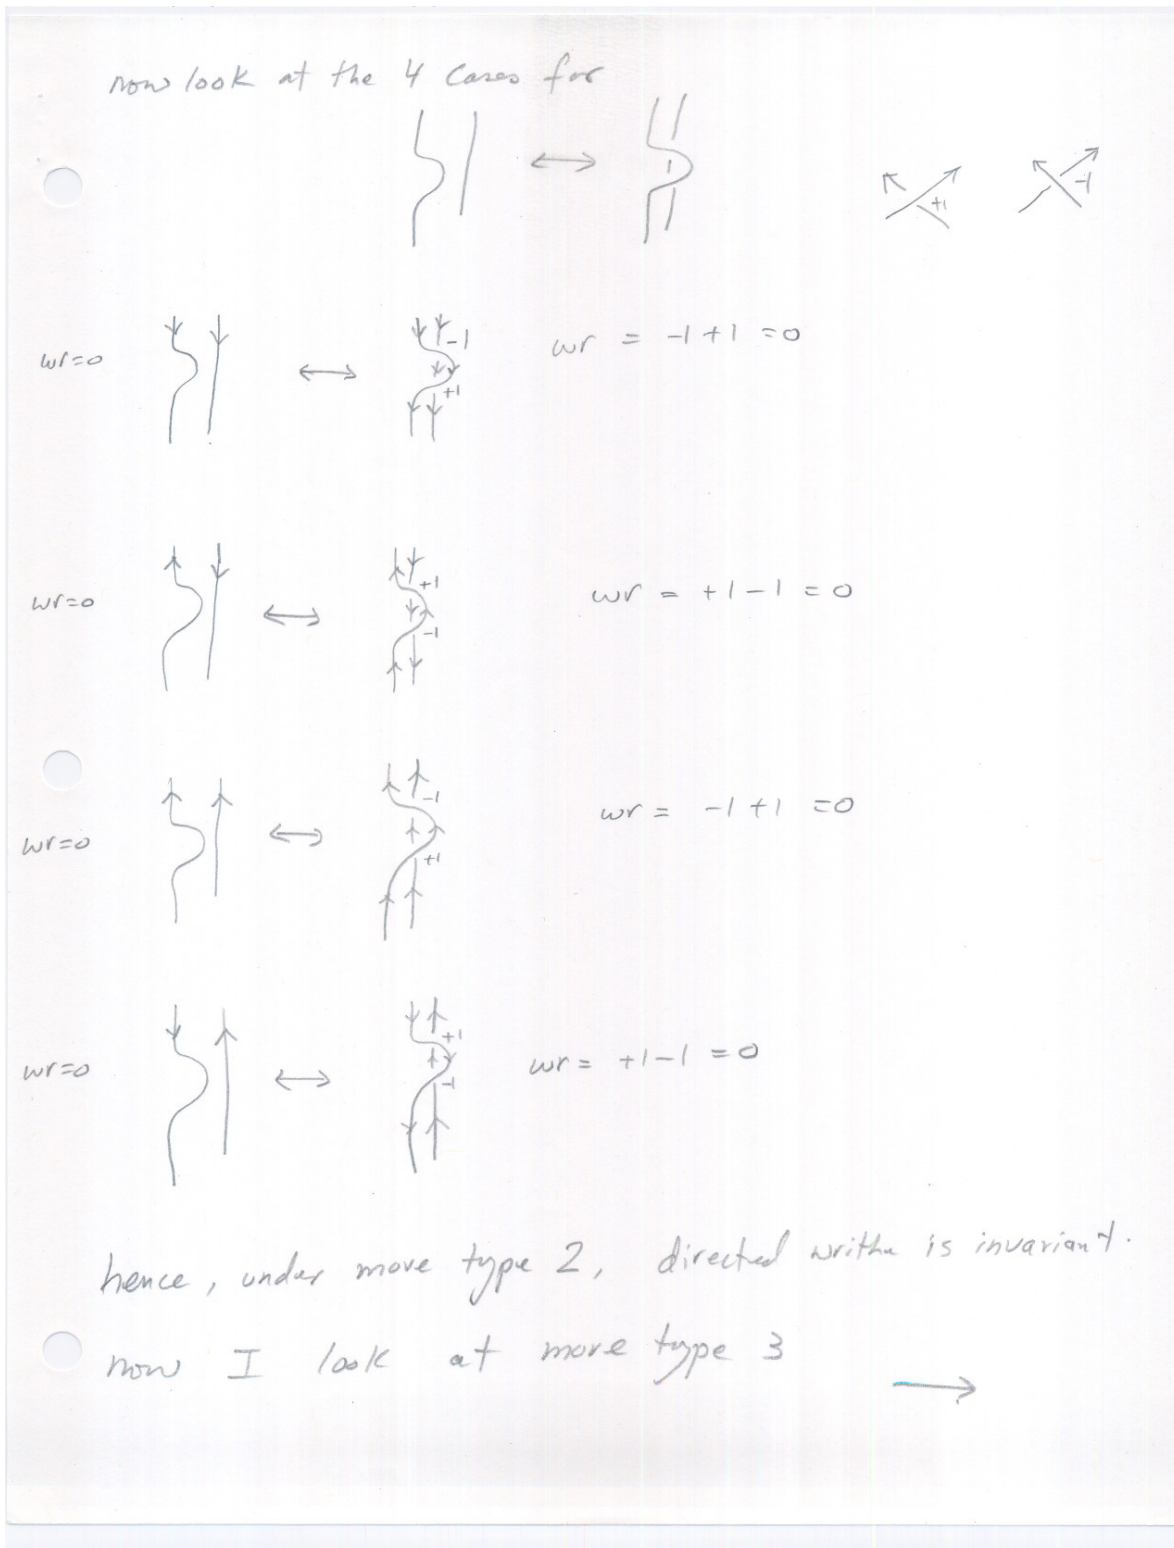 now look at the 4 cases for
+1 -1
wr=0 -1 +1 wr = -1 +1 =0
wr=0 +1 -1 wr = +1 -1 =0
wr=0 -1 +1 wr = -1 +1 =0
wr=0 +1 -1 wr = +1 -1 =0
hence, under move type 2, directed writhe is invariant.
now I look at move type 3